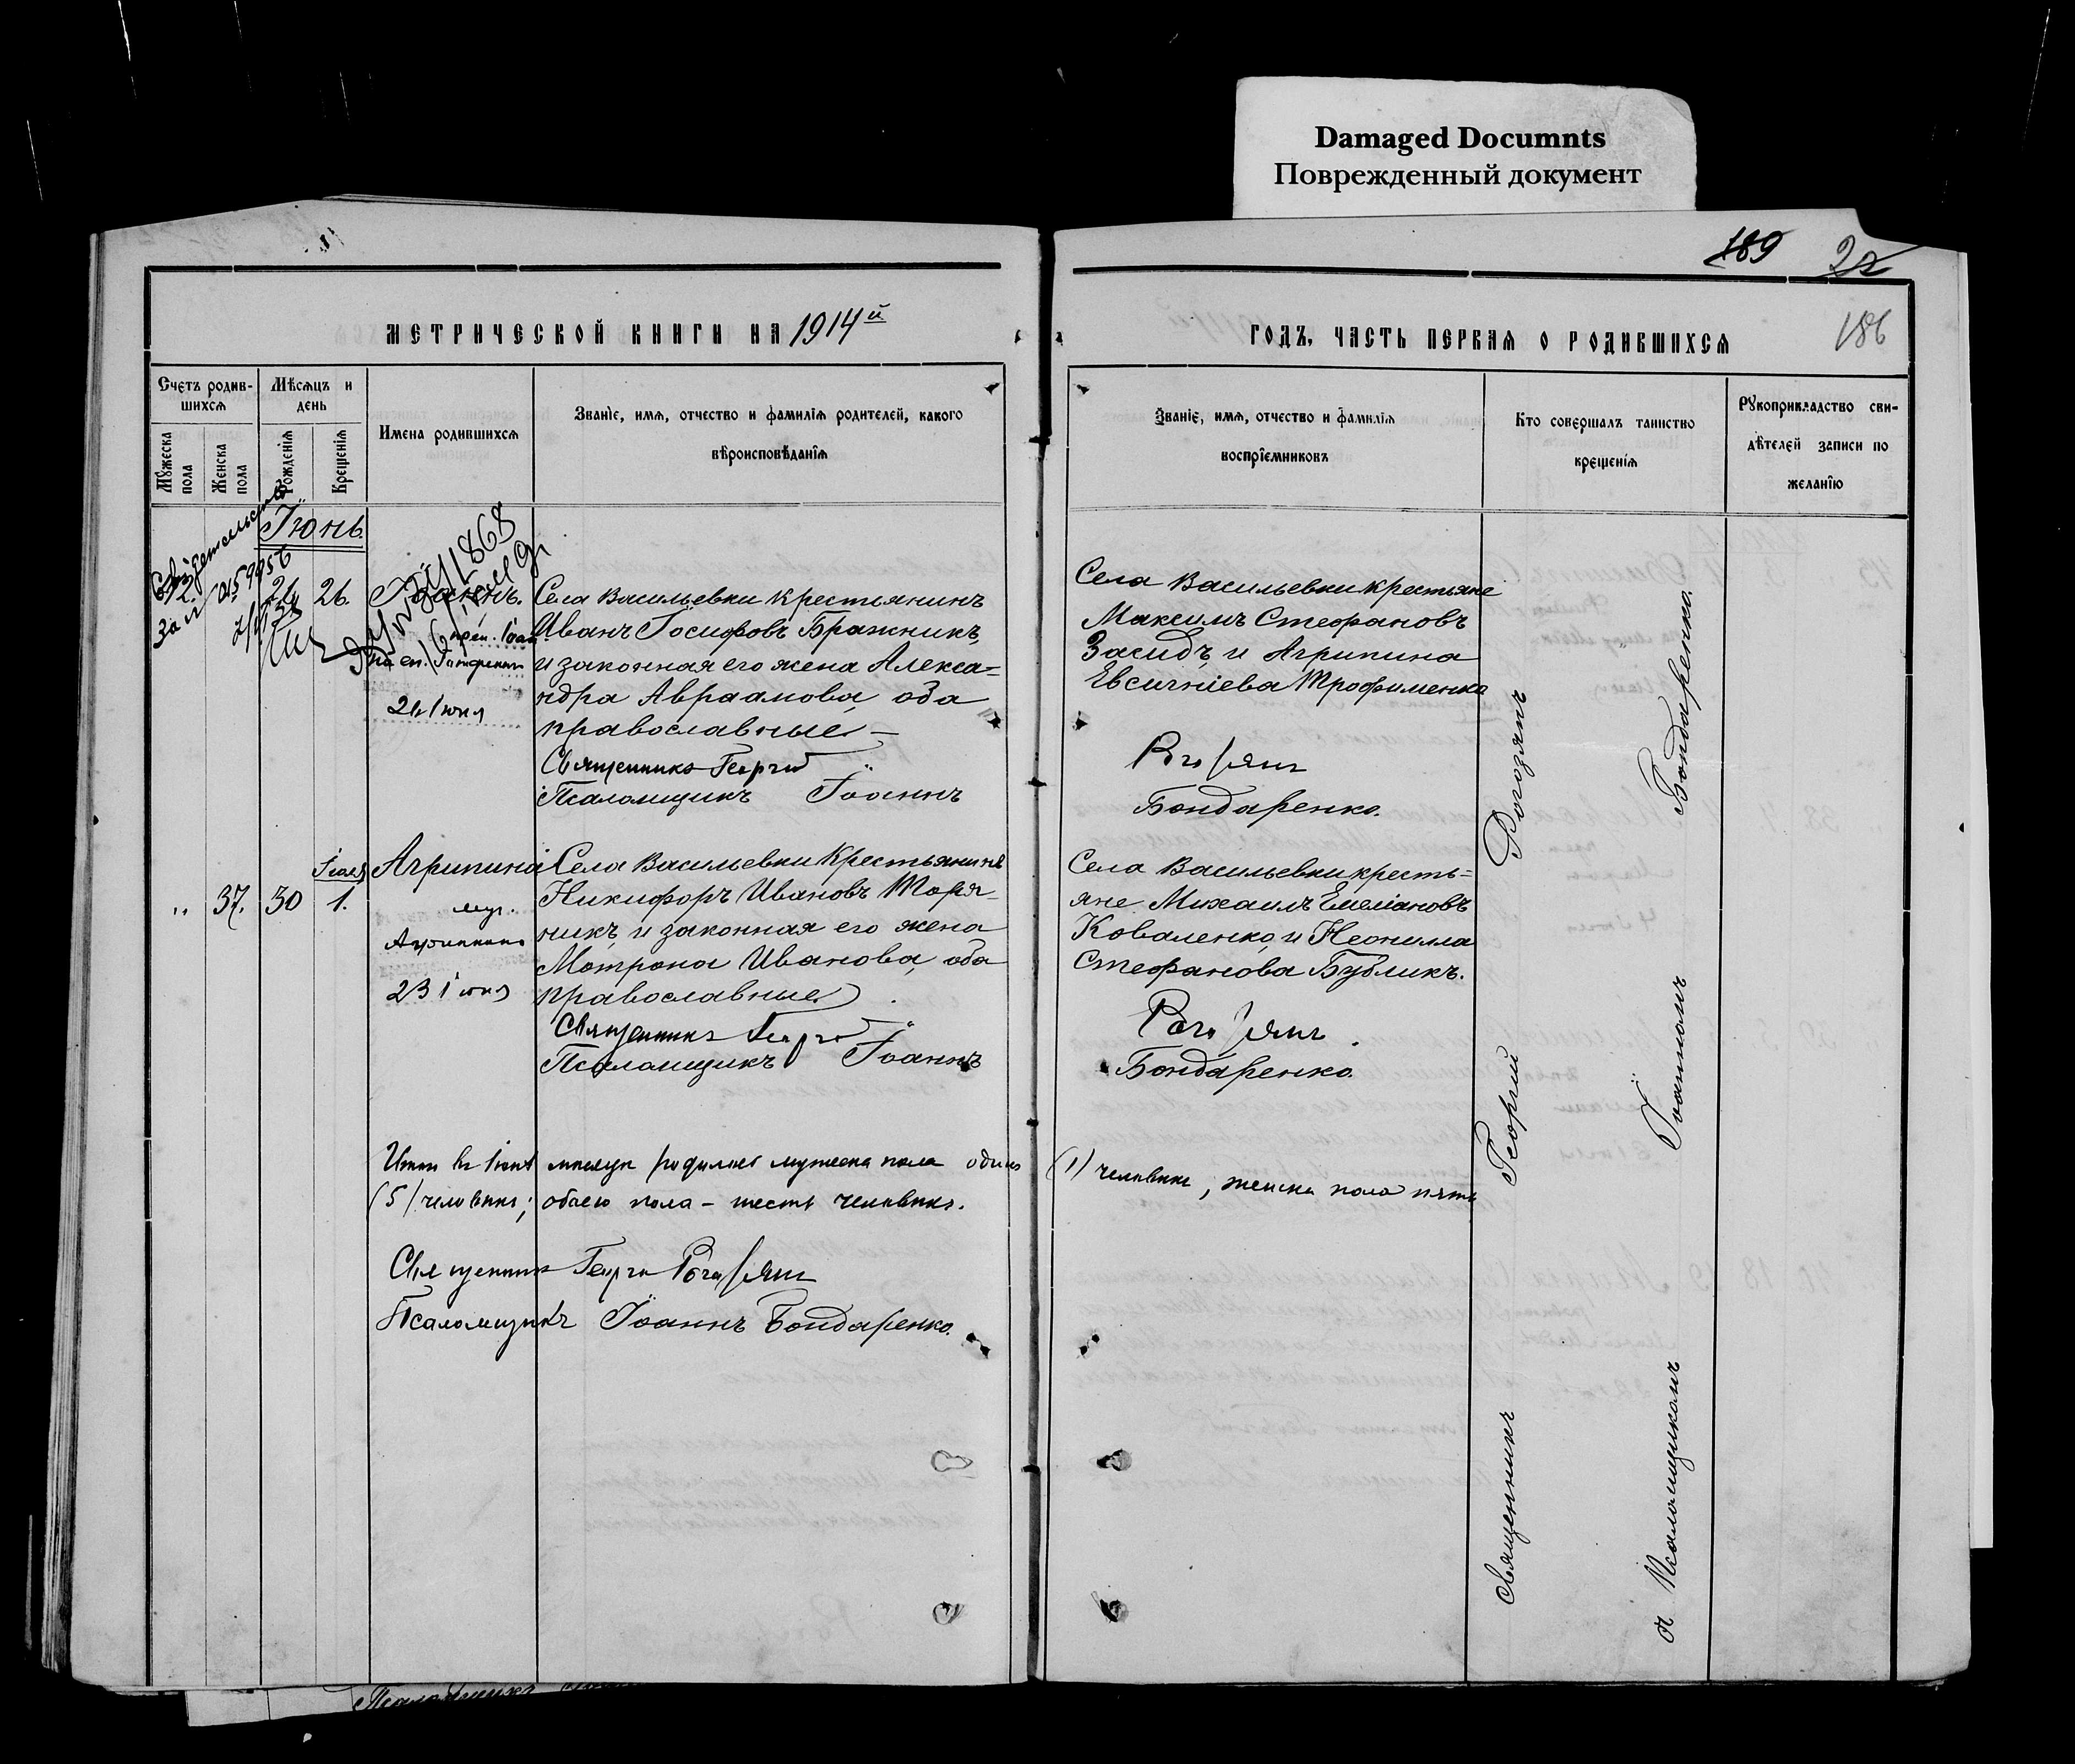 Damaged Documnts
Поврежденный документ
189
22
186
МЕТРИЧЕСКОЙ КНИГИ НА 1914й
ГОДЪ, ЧАСТЬ ПЕРВАЯ О РОДИВШИХСЯ
Счетъ родив-
шихся
Мужеска пола
Женска пола
Мѣсяцъ и
день
Рожденія
Крещенія
Имена родившихся
Званіе, имя, отчество и фамилія родителей, какого
вѣроисповѣданія
Званіе, имя, отчество и фамилія
воспріемниковъ
Кто совершалъ таинство
крещенія
Рукоприкладство сви-
дѣтелей записи по
желанію
Свидетельство
Іюнь.
26.
Іоаннъ.
Села Васильевки крестьянинъ
Иванъ Іосифовъ Бражникъ,
и законная его жена Алекса=
ндра Авраамова, оба
православные
Священникъ Георгій
Псаломщикъ Іоаннъ
24 Іюня
Села Васильевки крестьяне
Максимъ Стефановъ
Засидъ и Агрипина
Евсигніева Трофименко
Рогозянъ
Бондаренко.
„ 37. 30 Іюля 1.
Агрипина
муч.
Агриппина
23 Іюня
Села Васильевки Крестьянинъ
Никифоръ Ивановъ Торя-
никъ, и законная его жена
Мотрона Иванова, оба
православные
Священникъ Георгій
Псаломщикъ Іоаннъ
Села Васильевки кресть=
яне Михаилъ Емеліановъ
Коваленко, и Неонилла
Стефанова Бубликъ.
Рогозянъ
Бондаренко.
Итого въ Іюнѣ мѣсяцѣ родилось мужеска пола одинъ (1) человѣкъ, женска пола пять
(5) человѣкъ; обоего пола – шесть человѣкъ.
Священникъ Георгій Рогозянъ
Псаломщикъ Іоаннъ Бондаренко.
Священникъ Георгій Рогозянъ
съ Псаломщикомъ Іоанномъ Бондаренко.